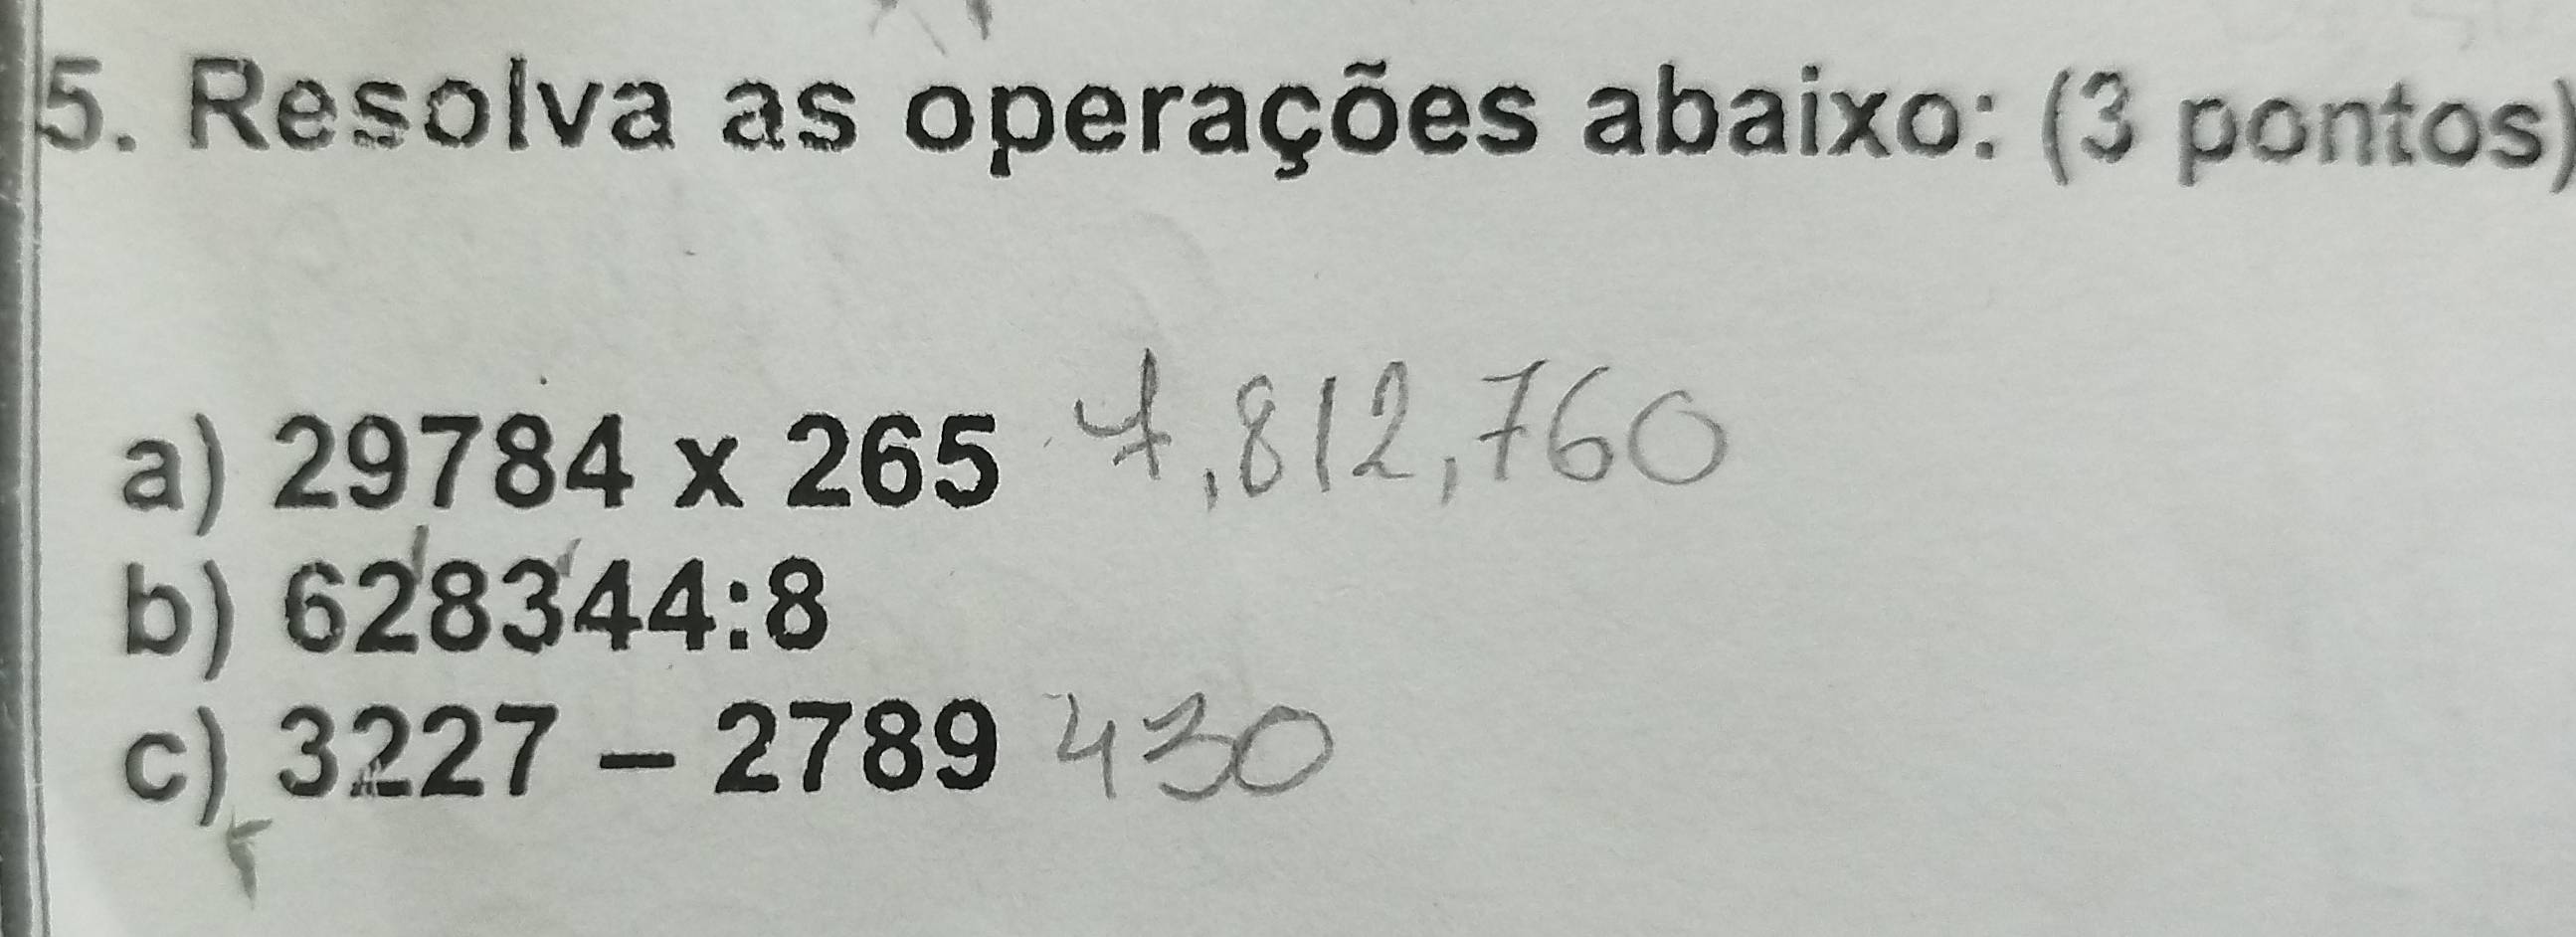 5. Resolva as operações abaixo: (3 pontos)
a) 29784 x 265 7,812,760
b) 628344:8
c) 3227 – 2789 430